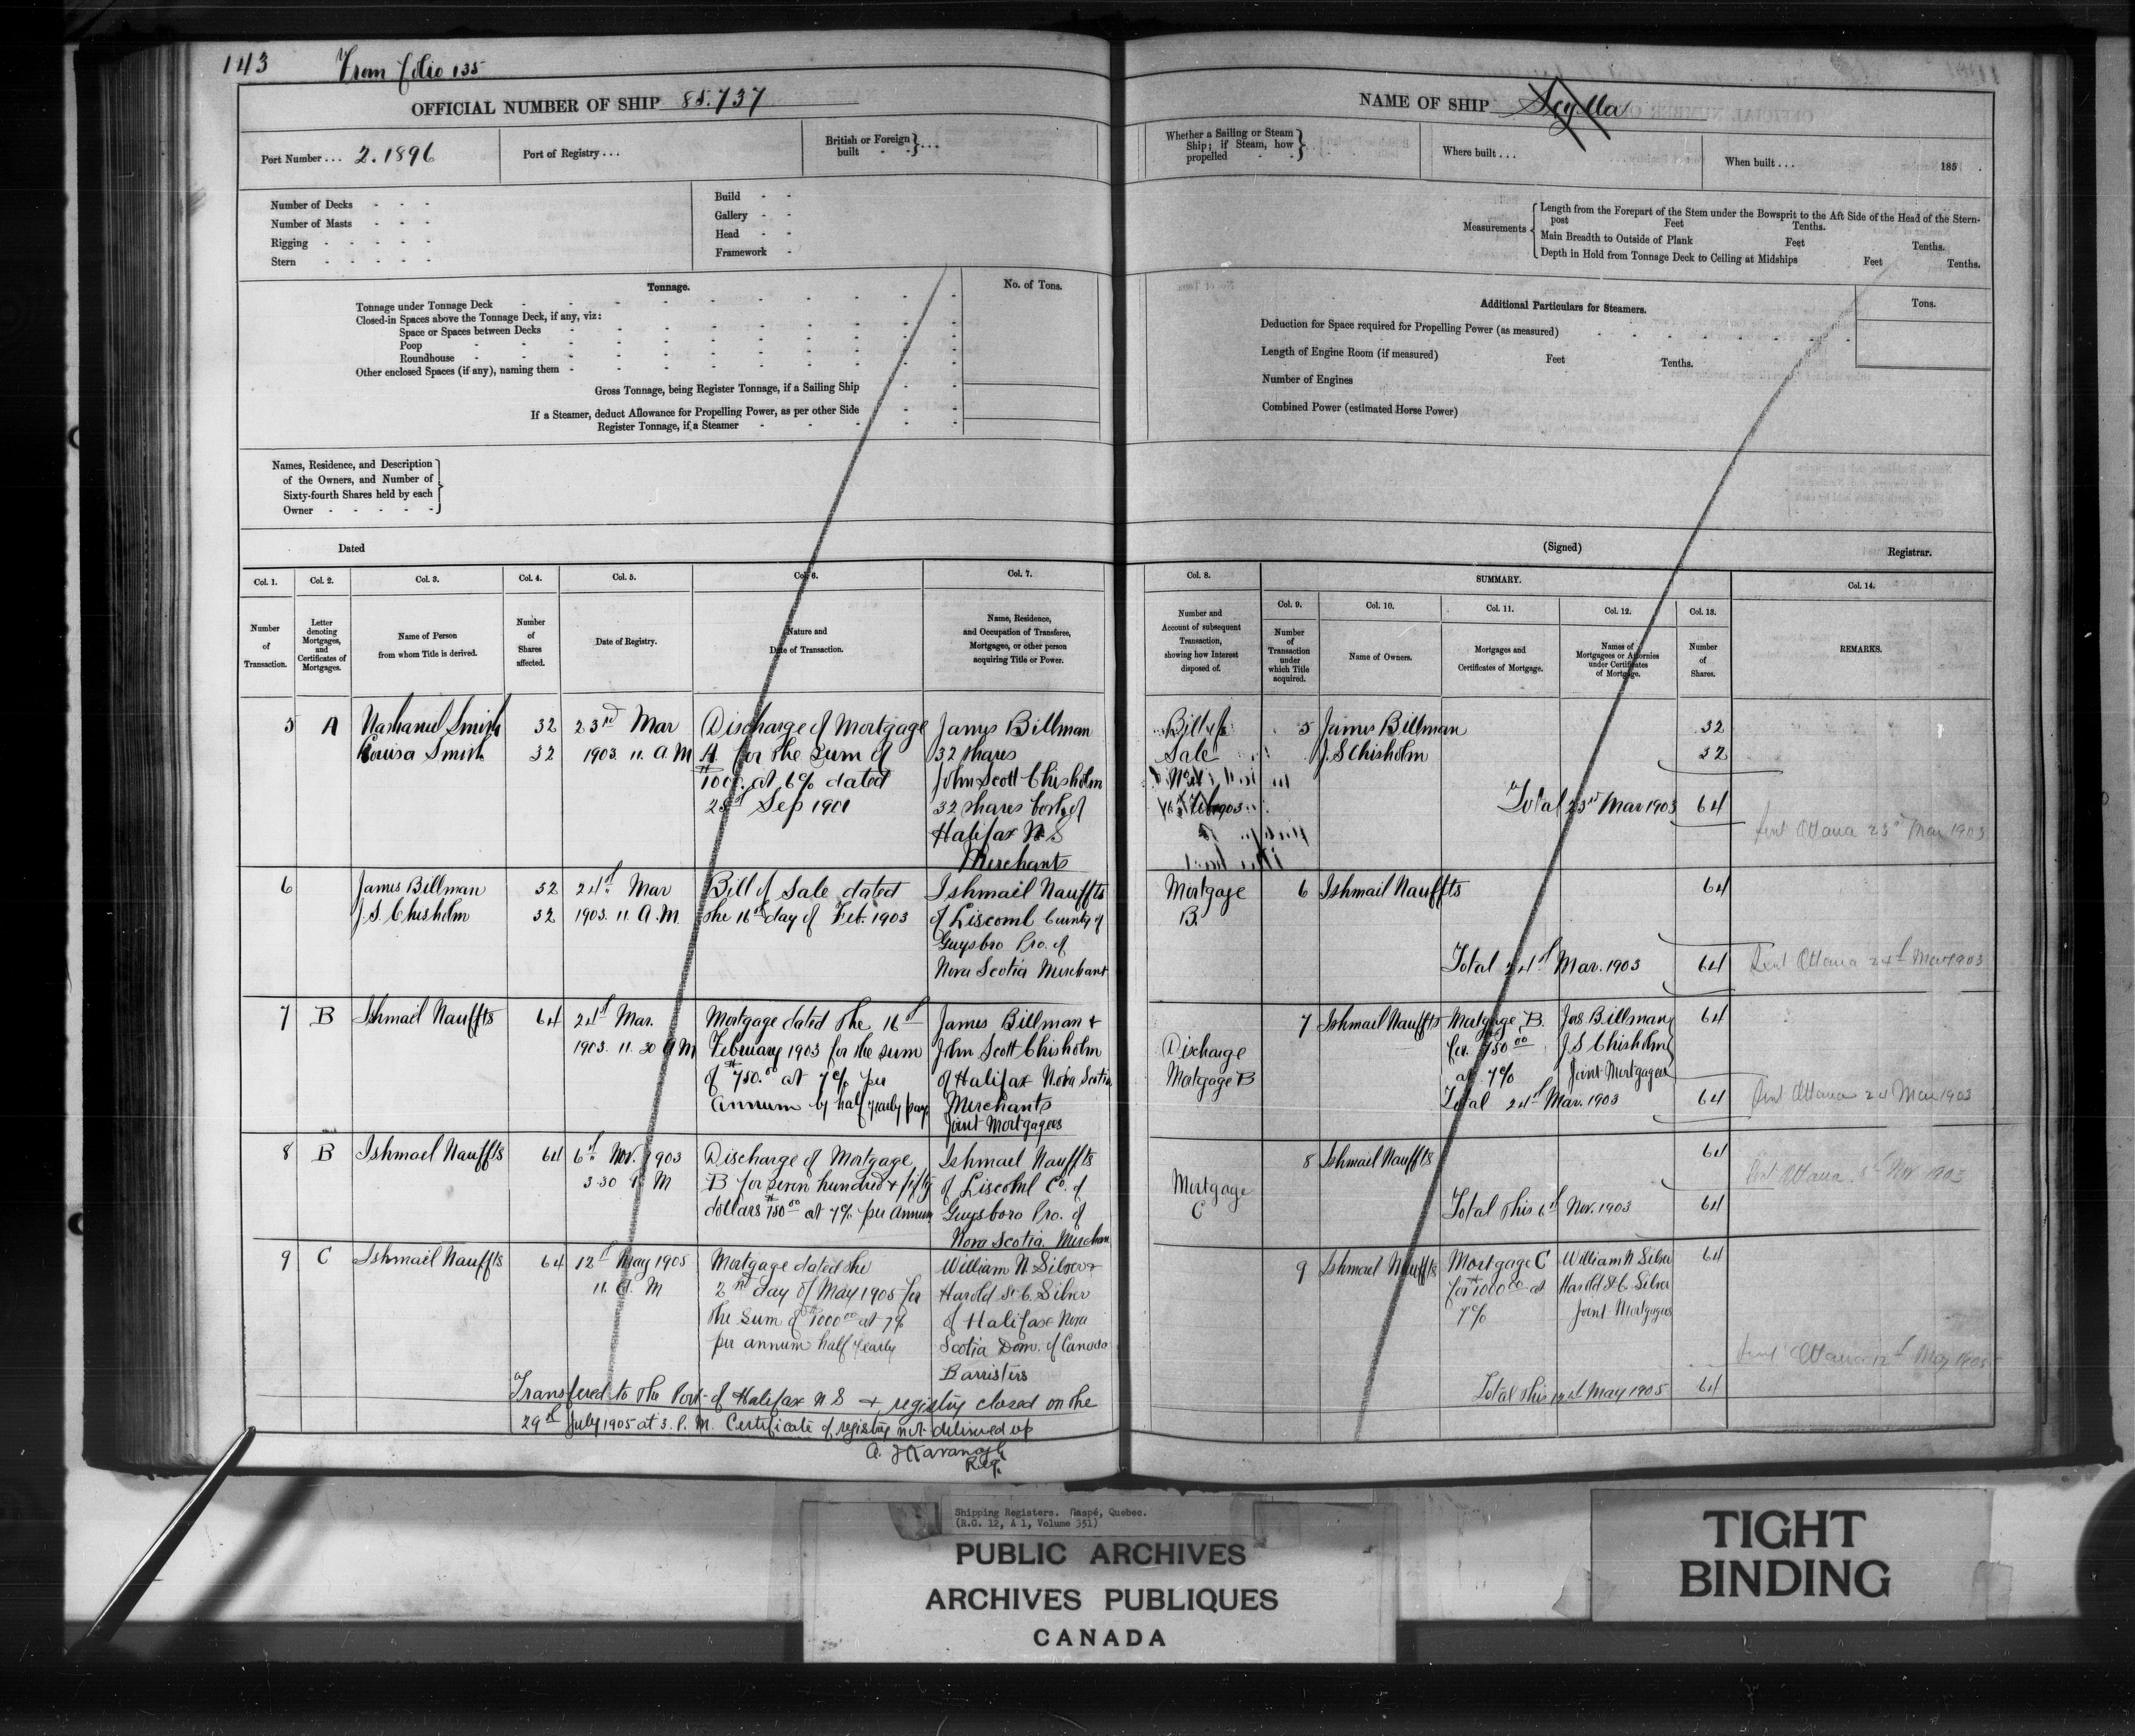 143 From folio 135
OFFICIAL NUMBER OF SHIP 85.737
Port Number... 2.1896
Port of Registry...
British or Foreign built - - } ...
Number of Decks - - -
Number of Masts - - -
Rigging - - - - -
Stern - - - - -
Build - -
Gallery - -
Head - -
Framework -
Tonnage.
No. of Tons.
Tonnage under Tonnage Deck
Closed-in Spaces above the Tonnage Deck, if any, viz:
Space or Spaces between Decks
Poop
Roundhouse
Other enclosed Spaces (if any), naming them
Gross Tonnage, being Register Tonnage, if a Sailing Ship
If a Steamer, deduct Allowance for Propelling Power, as per other Side
Register Tonnage, if a Steamer
Names, Residence, and Description
of the Owners, and Number of
Sixty-fourth Shares held by each
Owner - - - - -
Dated
Col. 1. Col. 2. Col. 3. Col. 4. Col. 5. Col. 6. Col. 7.
Number
of
Transaction.
Letter
denoting
Mortgages,
and
Certificates of
Mortgages.
Name of Person
from whom Title is derived.
Number
of
Shares
affected.
Date of Registry.
Nature and
Date of Transaction.
Name, Residence,
and Occupation of Transferee,
Mortgagee, or other person
acquiring Title or Power.
5 A Nathaniel Smith 32 23rd Mar Discharge of Mortgage James Billman
Louisa Smith 32 1903. 11. A.M A. for the Sum of 32 shares
$1000. at 6% dated John Scott Chisholm
Sep 1901 32 shares both of
Halifax N.S
Merchants
6 James Billman 32 24th Mar Bill of Sale dated Ishmail Nauffts
J.S. Chisholm 32 1903. 11. A.M. the 16th day of Feb. 1903 of Liscomb County of
Guysbro Pro. of
Nova Scotia Merchant
7 B Ishmail Nauffts 64 24th Mar. Mortgage dated the 16th James Billman +
1903. 11. 30 A M February 1903 for the sum John Scott Chisholm
of $750.00 at 7% per of Halifax Nova Scotia
Annum by half yearly pay Merchants
Joint Mortgagees
8 B Ishmael Nauffts 64 6th Nov. 1903 Discharge of Mortgage Ishmael Nauffts
3.30 P. M B for seven hundred + fifty of Liscomb Co. of
dollars $750.00 at 7% per Annum Guysboro Pro. of
Nova Scotia, Merchan
9 C Ishmael Nauffts 64 12th May 1905 Mortgage dated the William N Silver +
11. A. M 2nd day of May 1905 for Harold St C. Silver
the Sum of $1000.00 at 7% of Halifax Nova
per annum half yearly Scotia Dom. of Canada
Barristers
Transfered to the Port of Halifax N S + registry closed on the
29th July 1905 at 3. P. M. Certificate of registry not delivered up
A. J Kavanagh
Reg.
NAME OF SHIP Scylla
Whether a Sailing or Steam
Ship; if Steam, how
propelled - -
Where built...
When built... 185 .
Measurements
Length from the Forepart of the Stem under the Bowsprit to the Aft Side of the Head of the Stern-
post Feet Tenths.
Main Breadth to Outside of Plank Feet Tenths.
Depth in Hold from Tonnage Deck to Ceiling at Midships Feet Tenths.
Additional Particulars for Steamers.
Tons.
Deduction for Space required for Propelling Power (as measured)
Length of Engine Room (if measured) Feet Tenths.
Number of Engines
Combined Power (estimated Horse Power)
(Signed) Registrar.
Col. 8. SUMMARY. Col. 14.
Col. 9. Col. 10. Col. 11. Col. 12. Col. 13.
Number and
Account of subsequent
Transaction,
showing how Interest
disposed of.
Number
of
Transaction
under
which Title
acquired.
Name of Owners.
Mortgages and
Certificates of Mortgage.
Names of
Mortgagees or Attornies
under Certificates
of Mortgage.
Number
of
Shares.
REMARKS.
Bill of 5 James Billman 32
Sale J. S Chisholm 32
Total 23rd Mar 1903 64
Sent Ottawa 23rd Mar 1903
Mortgage 6 Ishmail Nauffts 64
B.
Total 24th Mar. 1903 64 Sent Ottawa 24th Mar 1903
7 Ishmail Nauffts Mortgage B. Jas Billman 64
Discharge for $750.00 J S Chisholm
Mortgage B at 7% Joint Mortgagees
Total 24th Mar. 1903 64 Sent Ottawa 24 Mar 1903
8 Ishmael Nauffts 64
Mortgage
C Total this 6th Nov. 1903 64
Sent Ottawa Nov 1903
9 Ishmael Nauffts Mortgage C William N Silver 64
for $1000.00 at Harold St C. Silver
7% Joint Mortgagees
Sent Ottawa 12th May 1905
Total this 12th May 1905 64
Shipping Registers. Gaspé, Quebec.
(R.G. 12, A 1, Volume 351)
PUBLIC ARCHIVES
ARCHIVES PUBLIQUES
CANADA
TIGHT
BINDING